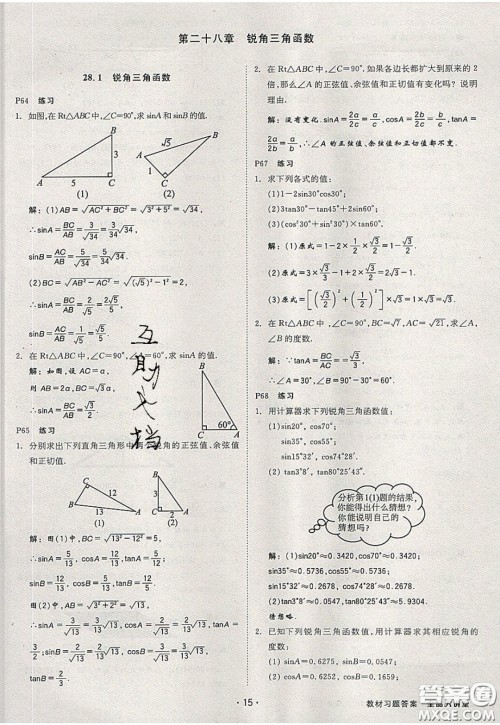 第二十八章 锐角三角函数
28.1 锐角三角函数
P64 练习
1. 如图,在Rt△ABC中,∠C=90°,求sinA和sinB的值.
B
3
A
5
C
(1)
B
√5
A
1
C
(2)
解:(1)AB=√(AC²+BC²)=√(3²+5²)=√34.
∴sinA=BC/AB=3/√34,
sinB=AC/AB=5/√34.
(2)AC=√(AB²-BC²)=√((√5)²-1)=2.
∴sinA=
sinB=
2. 在Rt△ABC中,∠C=90°,∠A=60°,求sinA的值.
解:如图,设AC=a,
则AB=2a,BC=√3a.
∴sinA=BC/AB=√3/2.
B
A
60°
C
P65 练习
1. 分别求出下列直角三角形中两个锐角的正弦值、余弦值和正切值.
12
13
(1)
2
3
(2)
解:图(1)中,BC=√(13²-12²)=5.
∴sinA=5/13,cosA=12/13,tanA=5/12,
sinB=12/13,cosB=5/13,tanB=12/5.
图(2)中,AB=√(3²+2²)=√13.
∴sinA=
sinB=
2. 在Rt△ABC中,∠C=90°.如果各边长都扩大到原来的2
倍,那么∠A的正弦值、余弦值和正切值有变化吗?说明
理由.
解:没有变化.sinA=2a/2c=a/c,cosA=2b/2c=b/c,tanA=
2a/2b=a/b,∴∠A的正弦值、余弦值和正切值都不变.
P67 练习
1. 求下列各式的值:
(1)1-2sin30°cos30°;
(2)3tan30°-tan45°+2sin60°;
解:(1)原式=1-2×1/2×√3/2=1-√3/2.
(2)原式=3×√3/3-1+2×√3/2=2√3-1.
(3)原式=
2. 在Rt△ABC中,∠C=90°,BC=√7,AC=√21,求∠A、∠B
的度数.
解:∵tanA=BC/AC=√7/√21=√3/3,
∴∠A=30°,∠B=90°-30°=60°.
P68 练习
1. 用计算器求下列锐角三角函数值:
(1)sin20°,cos70°;
sin35°,cos55°;
sin15°32′,cos74°28′;
(2)tan3°8′,tan80°25′43″.
分析第1(1)题的结果,
你能得出什么猜想?
你能说明自己的
猜想吗?
解:(1)sin20°≈0.3420,cos70°≈0.3420,
sin35°≈0.5736,cos55°≈0.5736,
sin15°32′≈0.2678,cos74°28′≈0.2678.
(2)tan3°8′≈0.0547,tan80°25′43″≈5.9304.
猜想略.
2. 已知下列锐角三角函数值,用计算器求其相应锐角的
度数:
(1)sinA=0.6275,sinB=0.0547;
(2)cosA=0.6252,cosB=0.1659;
互助文档
· 15 ·
教材习题答案